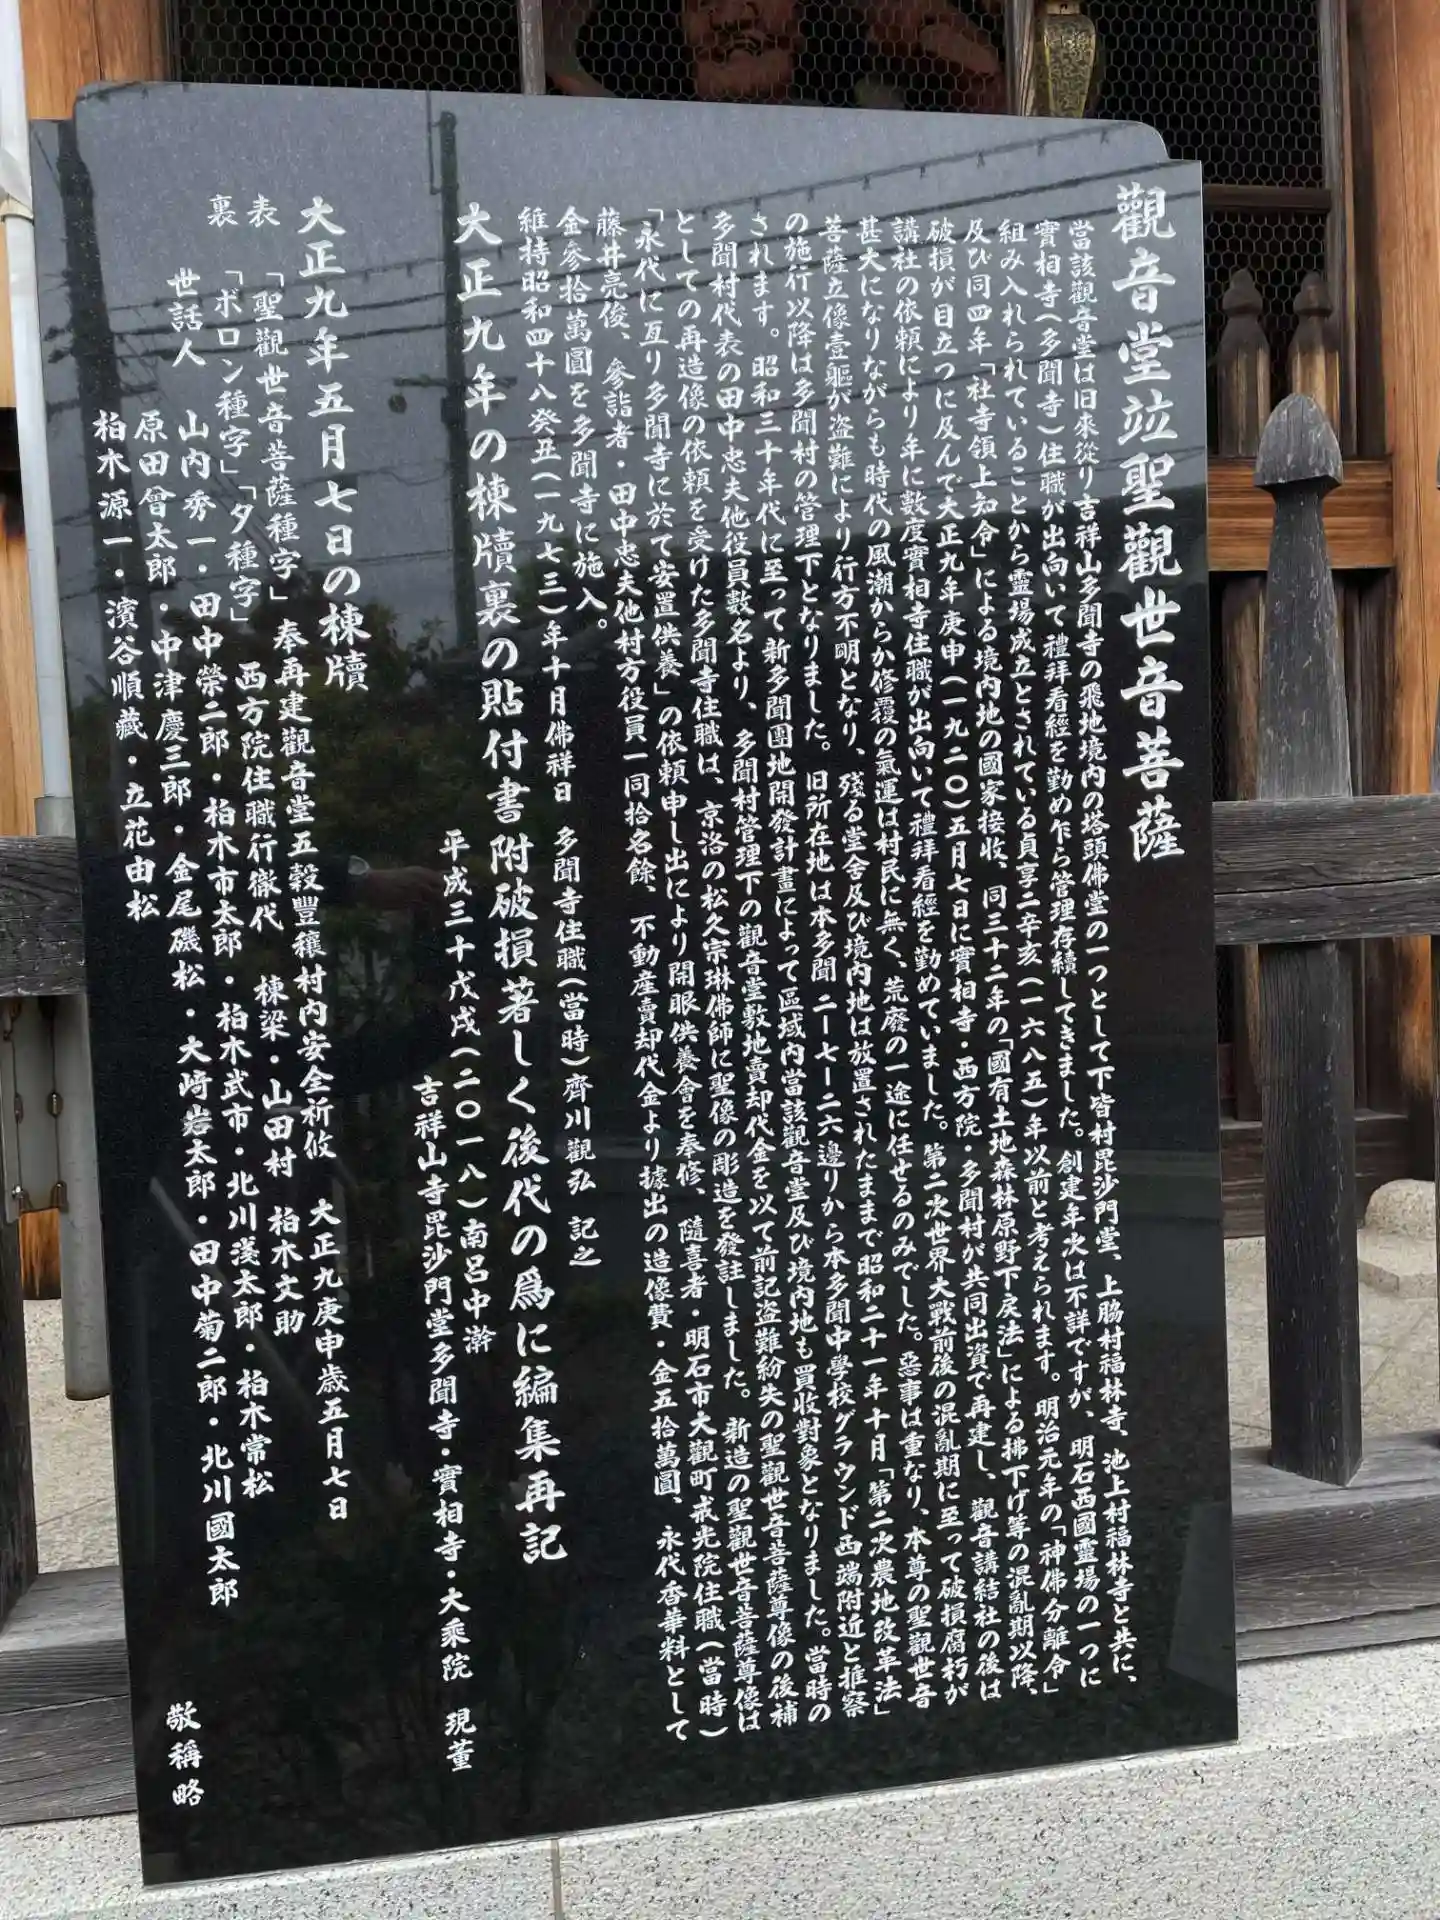 觀音堂竝聖觀世音菩薩
當該觀音堂は旧來從り吉祥山多聞寺の飛地境内の塔頭佛堂の一つとして下皆村毘沙門堂、上脇村福林寺、池上村福林寺と共に、
實相寺(多聞寺)住職が出向いて禮拜看經を勤め乍ら管理存續してきました。創建年次は不詳ですが、明石西國靈場の一つに
組み入れられていることから靈場成立とされている貞享二辛亥(一六八五)年以前と考えられます。明治元年の「神佛分離令」
及び同四年「社寺領上知令」による境内地の國家接收、同三十二年の「國有土地森林原野下戻法」による拂下げ等の混亂期以降、
破損が目立つに及んで大正九年庚申(一九二〇)五月七日に實相寺・西方院・多聞村が共同出資で再建し、觀音講結社の後は
講社の依頼により年に數度實相寺住職が出向いて禮拜看經を勤めていました。第二次世界大戰前後の混亂期に至って破損腐朽が
甚大になりながらも時代の風潮からか修覆の氣運は村民に無く、荒廢の一途に任せるのみでした。惡事は重なり、本尊の聖觀世音
菩薩立像壹軀が盜難により行方不明となり、殘る堂舍及び境内地は放置されたままで昭和二十一年十月「第二次農地改革法」
の施行以降は多聞村の管理下となりました。旧所在地は本多聞二ー七ー二六邊りから本多聞中學校グラウンド西端附近と推察
されます。昭和三十年代に至って新多聞團地開發計畫によって區域内當該觀音堂及び境内地も買收對象となりました。當時の
多聞村代表の田中忠夫他役員數名より、多聞村管理下の觀音堂敷地賣却代金を以て前記盜難紛失の聖觀世音菩薩尊像の後補
としての再造像の依頼を受けた多聞寺住職は、京洛の松久宗琳佛師に聖像の彫造を發註しました。新造の聖觀世音菩薩尊像は
「永代に亙り多聞寺に於て安置供養」の依頼申し出により開眼供養會を奉修、隨喜者・明石市大觀町戒光院住職(當時)
藤井亮俊、參詣者・田中忠夫他村方役員一同拾名餘、不動産賣却代金より據出の造像費・金五拾萬圓、永代香華料として
金參拾萬圓を多聞寺に施入。
維持昭和四十八癸丑(一九七三)年十月佛祥日 多聞寺住職(當時)齊川觀弘 記之
大正九年の棟牘裏の貼付書附破損著しく後代の爲に編集再記
平成三十戊戌(二〇一八)南呂中澣
吉祥山寺毘沙門堂多聞寺・實相寺・大乘院 現董
大正九年五月七日の棟牘
表 「聖觀世音菩薩種字」奉再建觀音堂五穀豐穰村内安全祈攸 大正九庚申歳五月七日
裏 「ボロン種字」「タ種字」 西方院住職行嶽代 棟梁・山田村 柏木文助
世話人 山内秀一・田中榮二郎・柏木市太郎・柏木武市・北川淺太郎・柏木常松
原田會太郎・中津慶三郎・金尾磯松・大﨑岩太郎・田中菊二郎・北川國太郎
柏木源一・濱谷順藏・立花由松
敬稱略